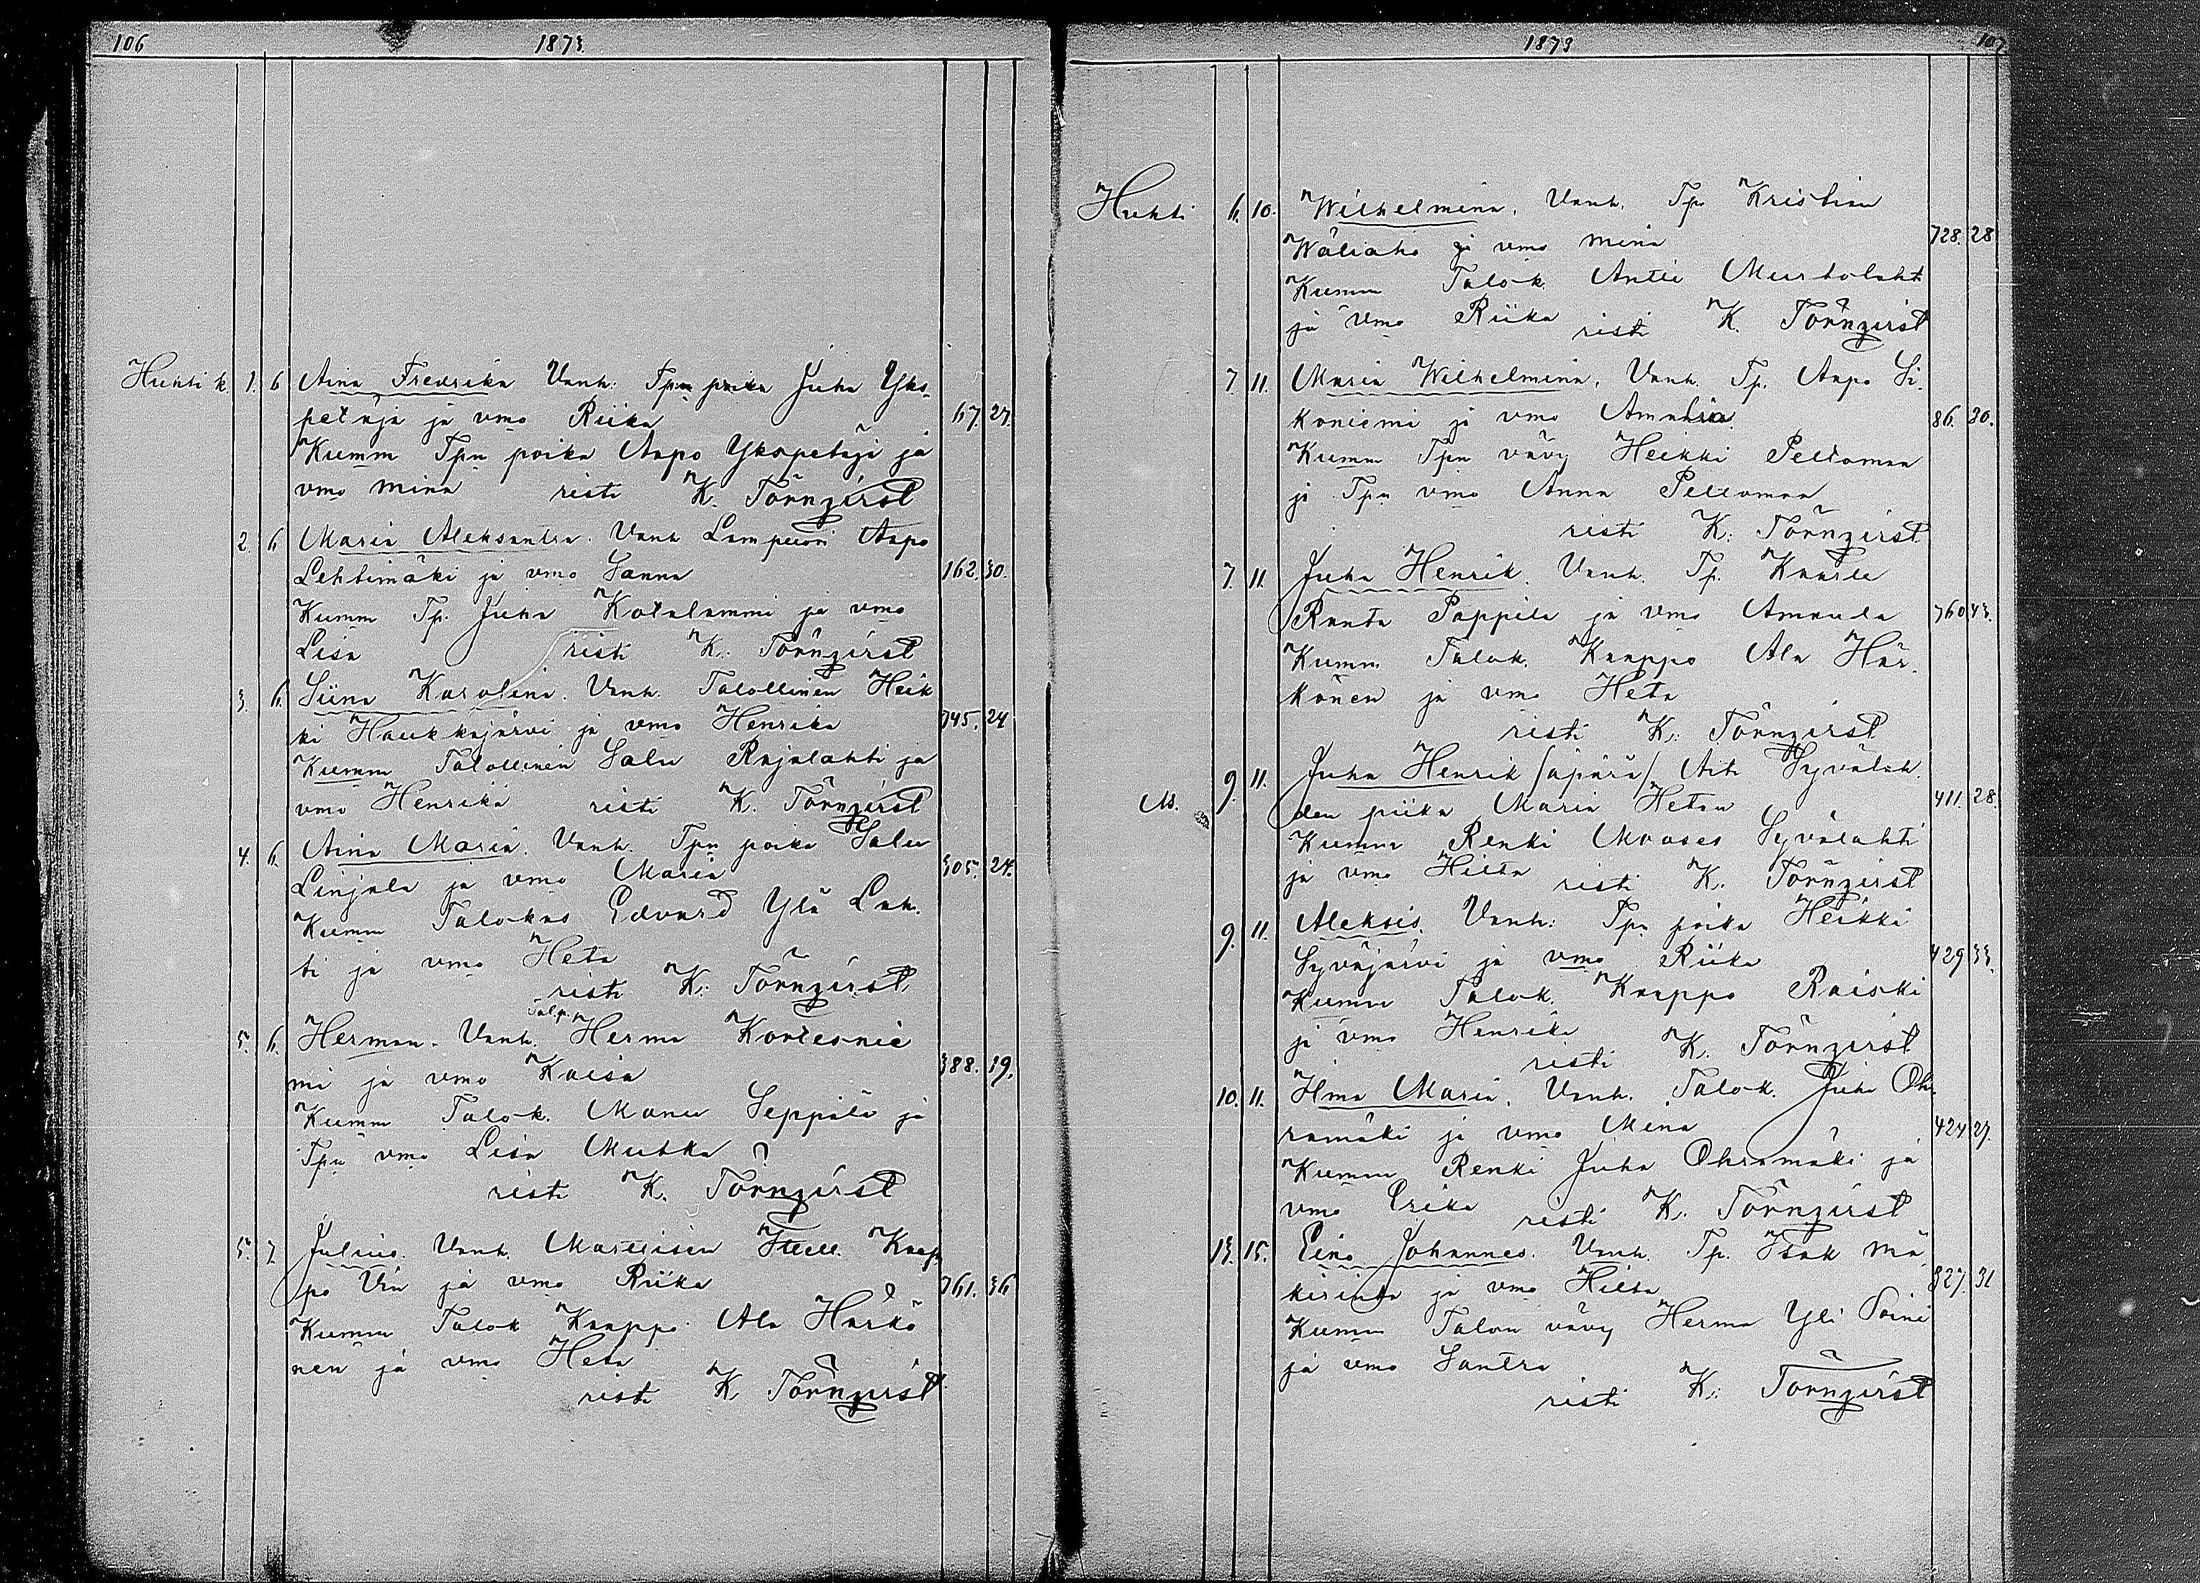 106 1873
Huhti k. 1. 6 Aina Fredrika Vanh: Tpn poika Juha Yks-
petäjä ja vmo Riika 67. 27.
Kumm Tpn poika Aapo Ykspetäjä ja
vmo Mina risti K. Törnqvist
2. 6 Maria Aleksantra. Vanh Lampuoti Aapo
Lehtimäki ja vmo Sanna 162. 30.
Kumm Tp. Juha Kotalammi ja vmo
Lisa risti K. Törnqvist
3. 6. Siina Karolina. Vanh. Talollinen Heik
ki Haukkajärvi ja vmo Henrika 745. 24
Kumm Talollinen Salu Rajalahti ja
vmo Henrika risti K. Törnqvist
4. 6. Aina Maria. Vanh. Tpn poika Salu
Linjala ja vmo Maria 305. 24.
Kumm Talokas Edvard Ylä Lah-
ti ja vmo Heta
risti K. Törnqvist
Talp.
5. 6. Herman. Vanh. Herma Kortesnie
mi ja vmo Kaisa 388. 19.
Kumm Talok. Manu Seppälä ja
Tpn vmo Lisa Mutka
risti K. Törnqvist
5. 7 Julius. Vanh. Itsell. Kaap
po ja vmo Riika 761. 36
Kumm Talok Kaappo Ala Härkö
nen ja vmo Heta
risti K. Törnqvist
1873 107
Huhti 6. 10. Wilhelmina. Vanh. Tp. Kristian
Wäliaho ja vmo Mina 728. 28
Kumm Talok. Antti Mustalaht
ja vmo Riika risti K. Törnqvist
7. 11. Maria Wilhelmina, Vanh. Tp. Aapo Si-
koniemi ja vmo Amalia 86. 30.
Kumm Tpn vävy Heikki Peltoman
ja Tpn vmo Anna Peltoman
risti K. Törnqvist
7. 11. Juha Henrik. Vanh. Tp. Kaarle
Ranta Pappila ja vmo Amanda 760 43.
Kumm Talok. Kaappo Ala Här-
könen ja vmo Heta
risti K. Törnqvist
9. 11. Juha Henrik /äpärä/. Äiti Syvälah
den piika Maria Hetan 411. 28.
Kumm Renki Moases Syvälahti
ja vmo risti K. Törnqvist
9. 11. Aleksis. Vanh: Tpn poika Heikki
Syväjärvi ja vmo Riika 429 33.
Kumm Talok. Kaappo Raiski
ja vmo Henrika
risti K. Törnqvist
10. 11. Ilma Maria. Vanh. Talok. Juha Oh-
ramäki ja vmo Mina 424 27.
Kumm Renki Juha Ohramäki ja
vmo Erika risti K. Törnqvist
13. 15. Eino Johannes. Vanh. Tp. Isak Mä
kirinta ja vmo Hilta 827. 31
Kumm Talon vävy Herma Yli Soini
ja vmo Santra
risti K. Törnqvist